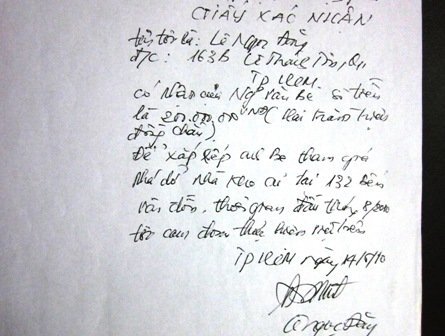 GIẤY XÁC NHẬN
tên tôi là: Lê Ngọc
đ/c: 163B Lê Thánh Tôn, Q1
TP HCM
có nhận của Ng Văn Bê số tiền
là 200.000.000 VNĐ ( Hai trăm triệu
đồng chẵn)
Để sắp xếp cho Be tham gia
phá dỡ nhà kho cũ tại 132 bến
vân đồn, thời gian đầu tháng 8/2010
tôi cam đoan thực hiện
TP HCM ngày 14/6/10